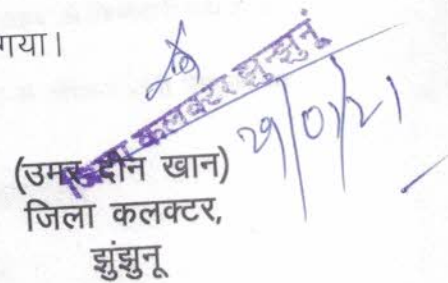 गया।
जिला कलक्टर झुन्झुनूं
29/01/21
(उमर दीन खान)
जिला कलक्टर,
झुंझुनू